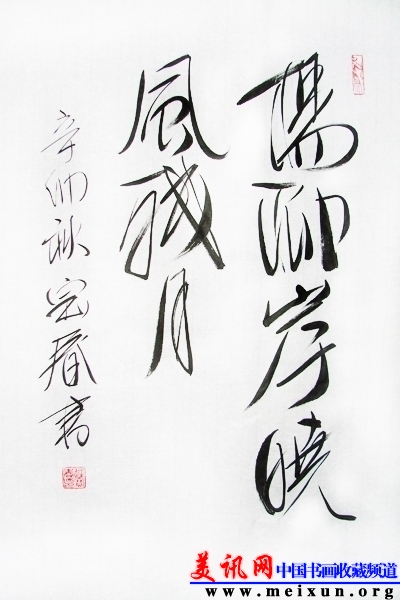 楊柳岸曉
風殘月
辛卯秋定春書
美讯网中国书画收藏频道
www.meixun.org